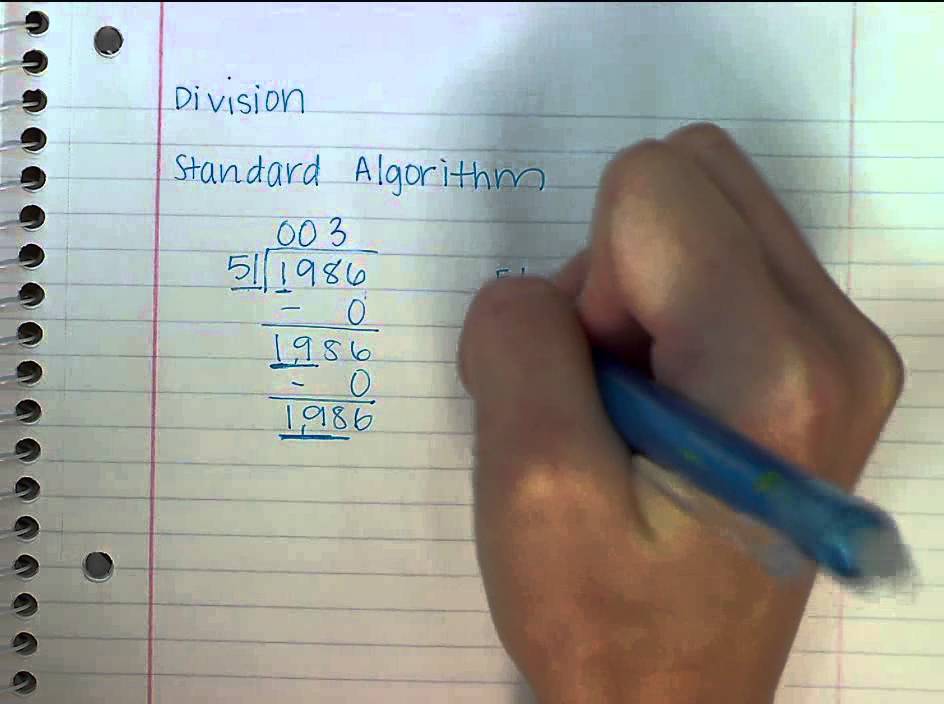 Division
Standard Algorithm
003
51 1986
- 0
1,986
- 0
1,986